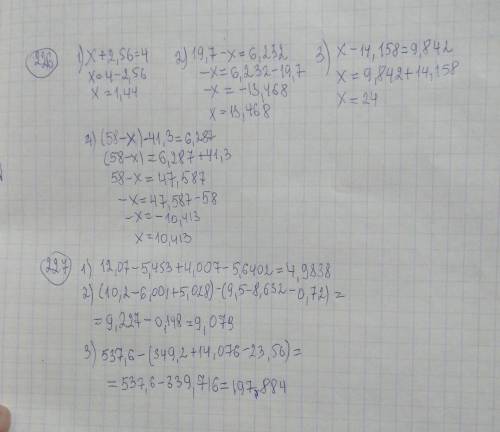 226 1) x+2,56=4
x=4-2,56
x=1,44
2) 19,7-x=6,232
-x=6,232-19,7
-x=-13,468
x=13,468
3) x-14,158=9,842
x=9,842+14,158
x=24
4) (58-x)-41,3=6,287
(58-x)=6,287+41,3
58-x=47,587
-x=47,587-58
-x=-10,413
x=10,413
227 1) 12,07-5,453+4,007-5,6402=4,9838
2) (10,2-6,001+5,028)-(9,5-8,632-0,72)=
=9,227-0,148=9,079
3) 537,6-(349,2+14,076-23,56)=
=537,6-339,716=197,884